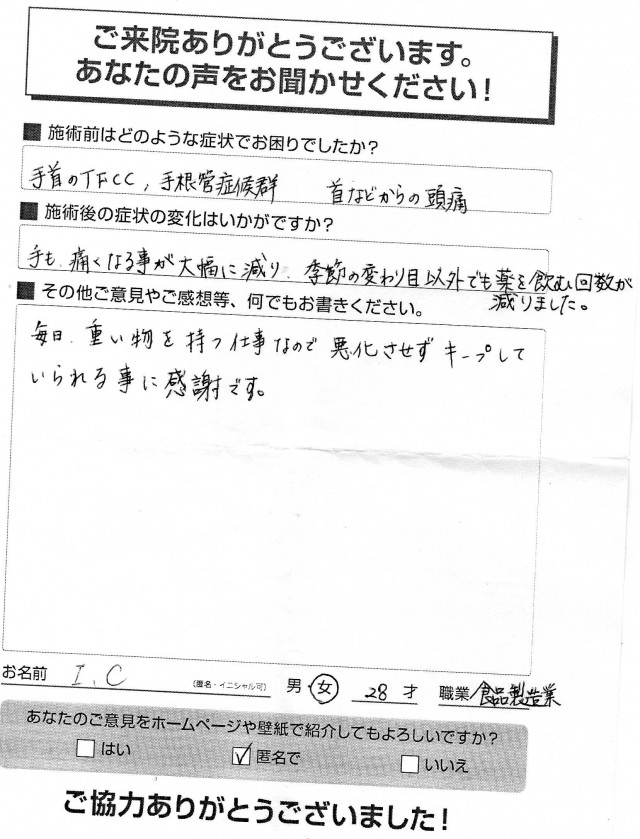 ご来院ありがとうございます。
あなたの声をお聞かせください！
■ 施術前はどのような症状でお困りでしたか？
手首のTFCC，手根管症候群　首などからの頭痛
■ 施術後の症状の変化はいかがですか？
手も、痛くなる事が大幅に減り、季節の変わり目以外でも薬を飲む回数が
減りました。
■ その他ご意見やご感想等、何でもお書きください。
毎日、重い物を持つ仕事なので悪化させずキープして
いられる事に感謝です。
お名前 I.C （匿名・イニシャル可） 男・女 28才 職業/食品製造業
あなたのご意見をホームページや壁紙で紹介してもよろしいですか？
□ はい ☑ 匿名で □ いいえ
ご協力ありがとうございました！